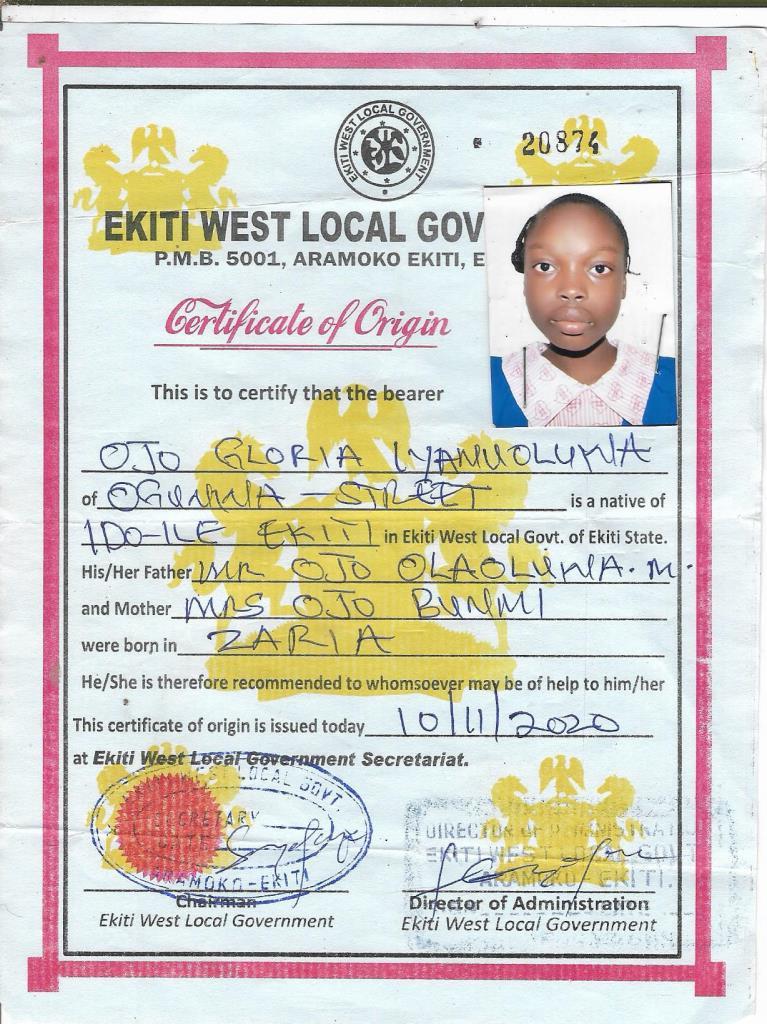 EKITI WEST LOCAL GOVERNMENT
20874
EKITI WEST LOCAL GOV
P.M.B. 5001, ARAMOKO EKITI, E
Certificate of Origin
This is to certify that the bearer
OJO GLORIA IYANUOLUWA
of OGUNNA - STREET is a native of
IDO-ILE EKITI in Ekiti West Local Govt. of Ekiti State.
His/Her Father MR OJO OLAOLUWA. M.
and Mother MRS OJO BUNMI
were born in ZARIA
He/She is therefore recommended to whomsoever may be of help to him/her
This certificate of origin is issued today 10/11/2020
at Ekiti West Local Government Secretariat.
WEST LOCAL GOVT.
SECRETARY
DATE
ARAMOKO-EKITI
DIRECTOR OF ADMINISTRATION
EKITI WEST LOCAL GOVT
ARAMOKO-EKITI.
Chairman
Ekiti West Local Government
Director of Administration
Ekiti West Local Government